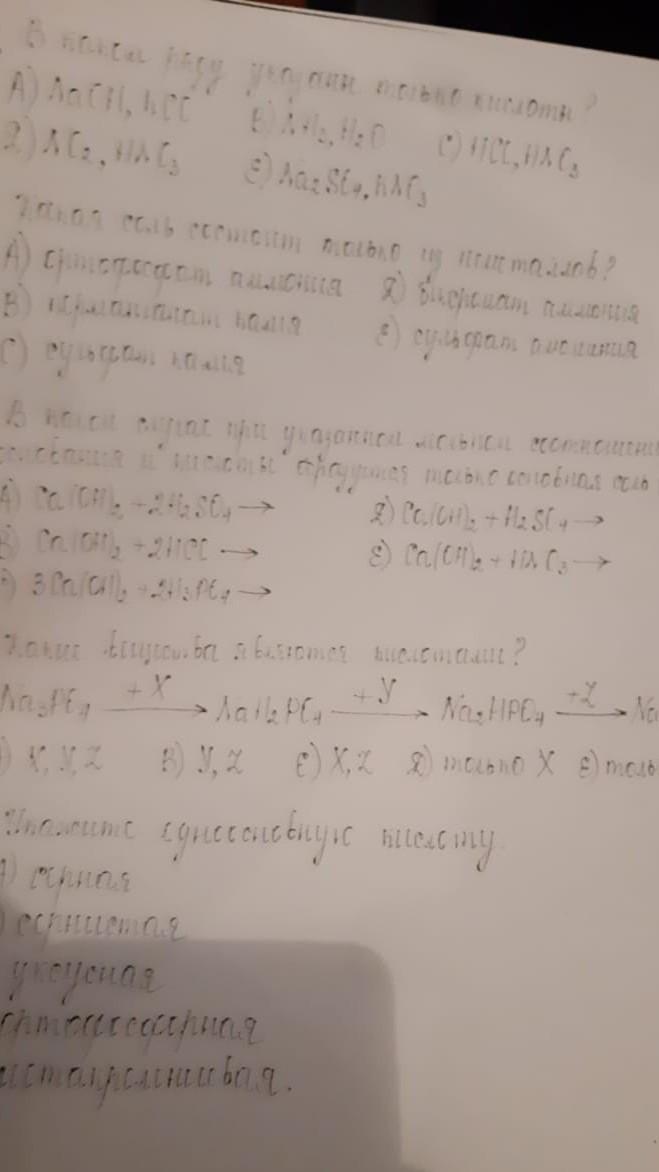 В каком ряду указаны только кислоты?
A) NaOH, KCl B) NH3, H2O C) HCl, HNO3
D) NO2, HNO3 E) Na2SO4, KNO3
Какая соль состоит только из неметаллов?
A) ортофосфат аммония D) бихромат аммония
B) перманганат калия E) сульфат алюминия
C) сульфат калия
В каком случае при указанном мольном соотношении
основания и кислоты образуется только основная соль
A) Ca(OH)2 + 2H2SO4 → D) Ca(OH)2 + H2SO4 →
B) Ca(OH)2 + 2HCl → E) Ca(OH)2 + HNO3 →
) 3Ca(OH)2 + 2H3PO4 →
Какие вещества являются кислотами?
Na3PO4 +X → NaH2PO4 +Y → Na2HPO4 +Z → Na
) X, Y, Z B) Y, Z C) X, Z D) только X E) толь
Укажите одноосновную кислоту
A) серная
) сернистая
уксусная
ортофосфорная
метакремниевая.